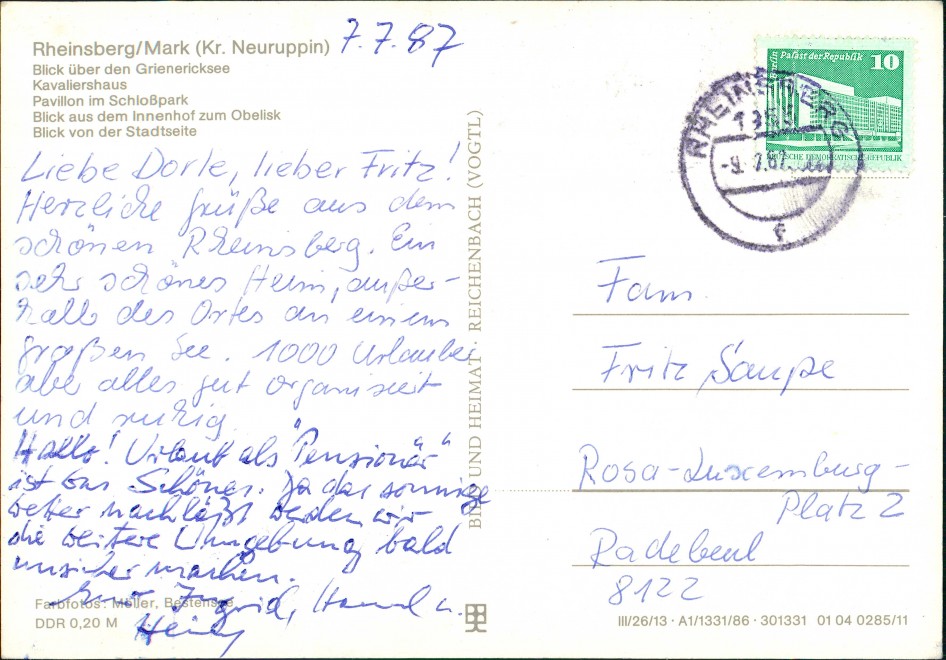 Rheinsberg/Mark (Kr. Neuruppin) 7.7.87
Blick über den Grienericksee
Kavaliershaus
Pavillon im Schloßpark
Blick aus dem Innenhof zum Obelisk
Blick von der Stadtseite
Liebe Dorle, lieber Fritz!
Herzliche Grüße aus dem
schönen Rheinsberg. Ein
sehr schönes Heim, außer-
halb des Ortes an einem
großen See. 1000 Urlauber
aber alles gut organisiert
und ruhig.
Hallo! Urlaub als "Pensionär"
ist was Schönes. Da das sonnige
Wetter nachläßt werden wir
die weitere Umgebung bald
unsicher machen.
Ingrid, u.
Farbfotos: Müller, Bestensee
DDR 0,20 M
BILD UND HEIMAT · REICHENBACH (VOGTL)
Berlin Palast der Republik 10
DEUTSCHE DEMOKRATISCHE REPUBLIK
RHEINSBERG
-9.7.87
f
Fam.
Fritz Saupe
Rosa-Luxemburg-
Platz 2
Radebeul
8122
III/26/13 · A1/1331/86 · 301331 01 04 0285/11